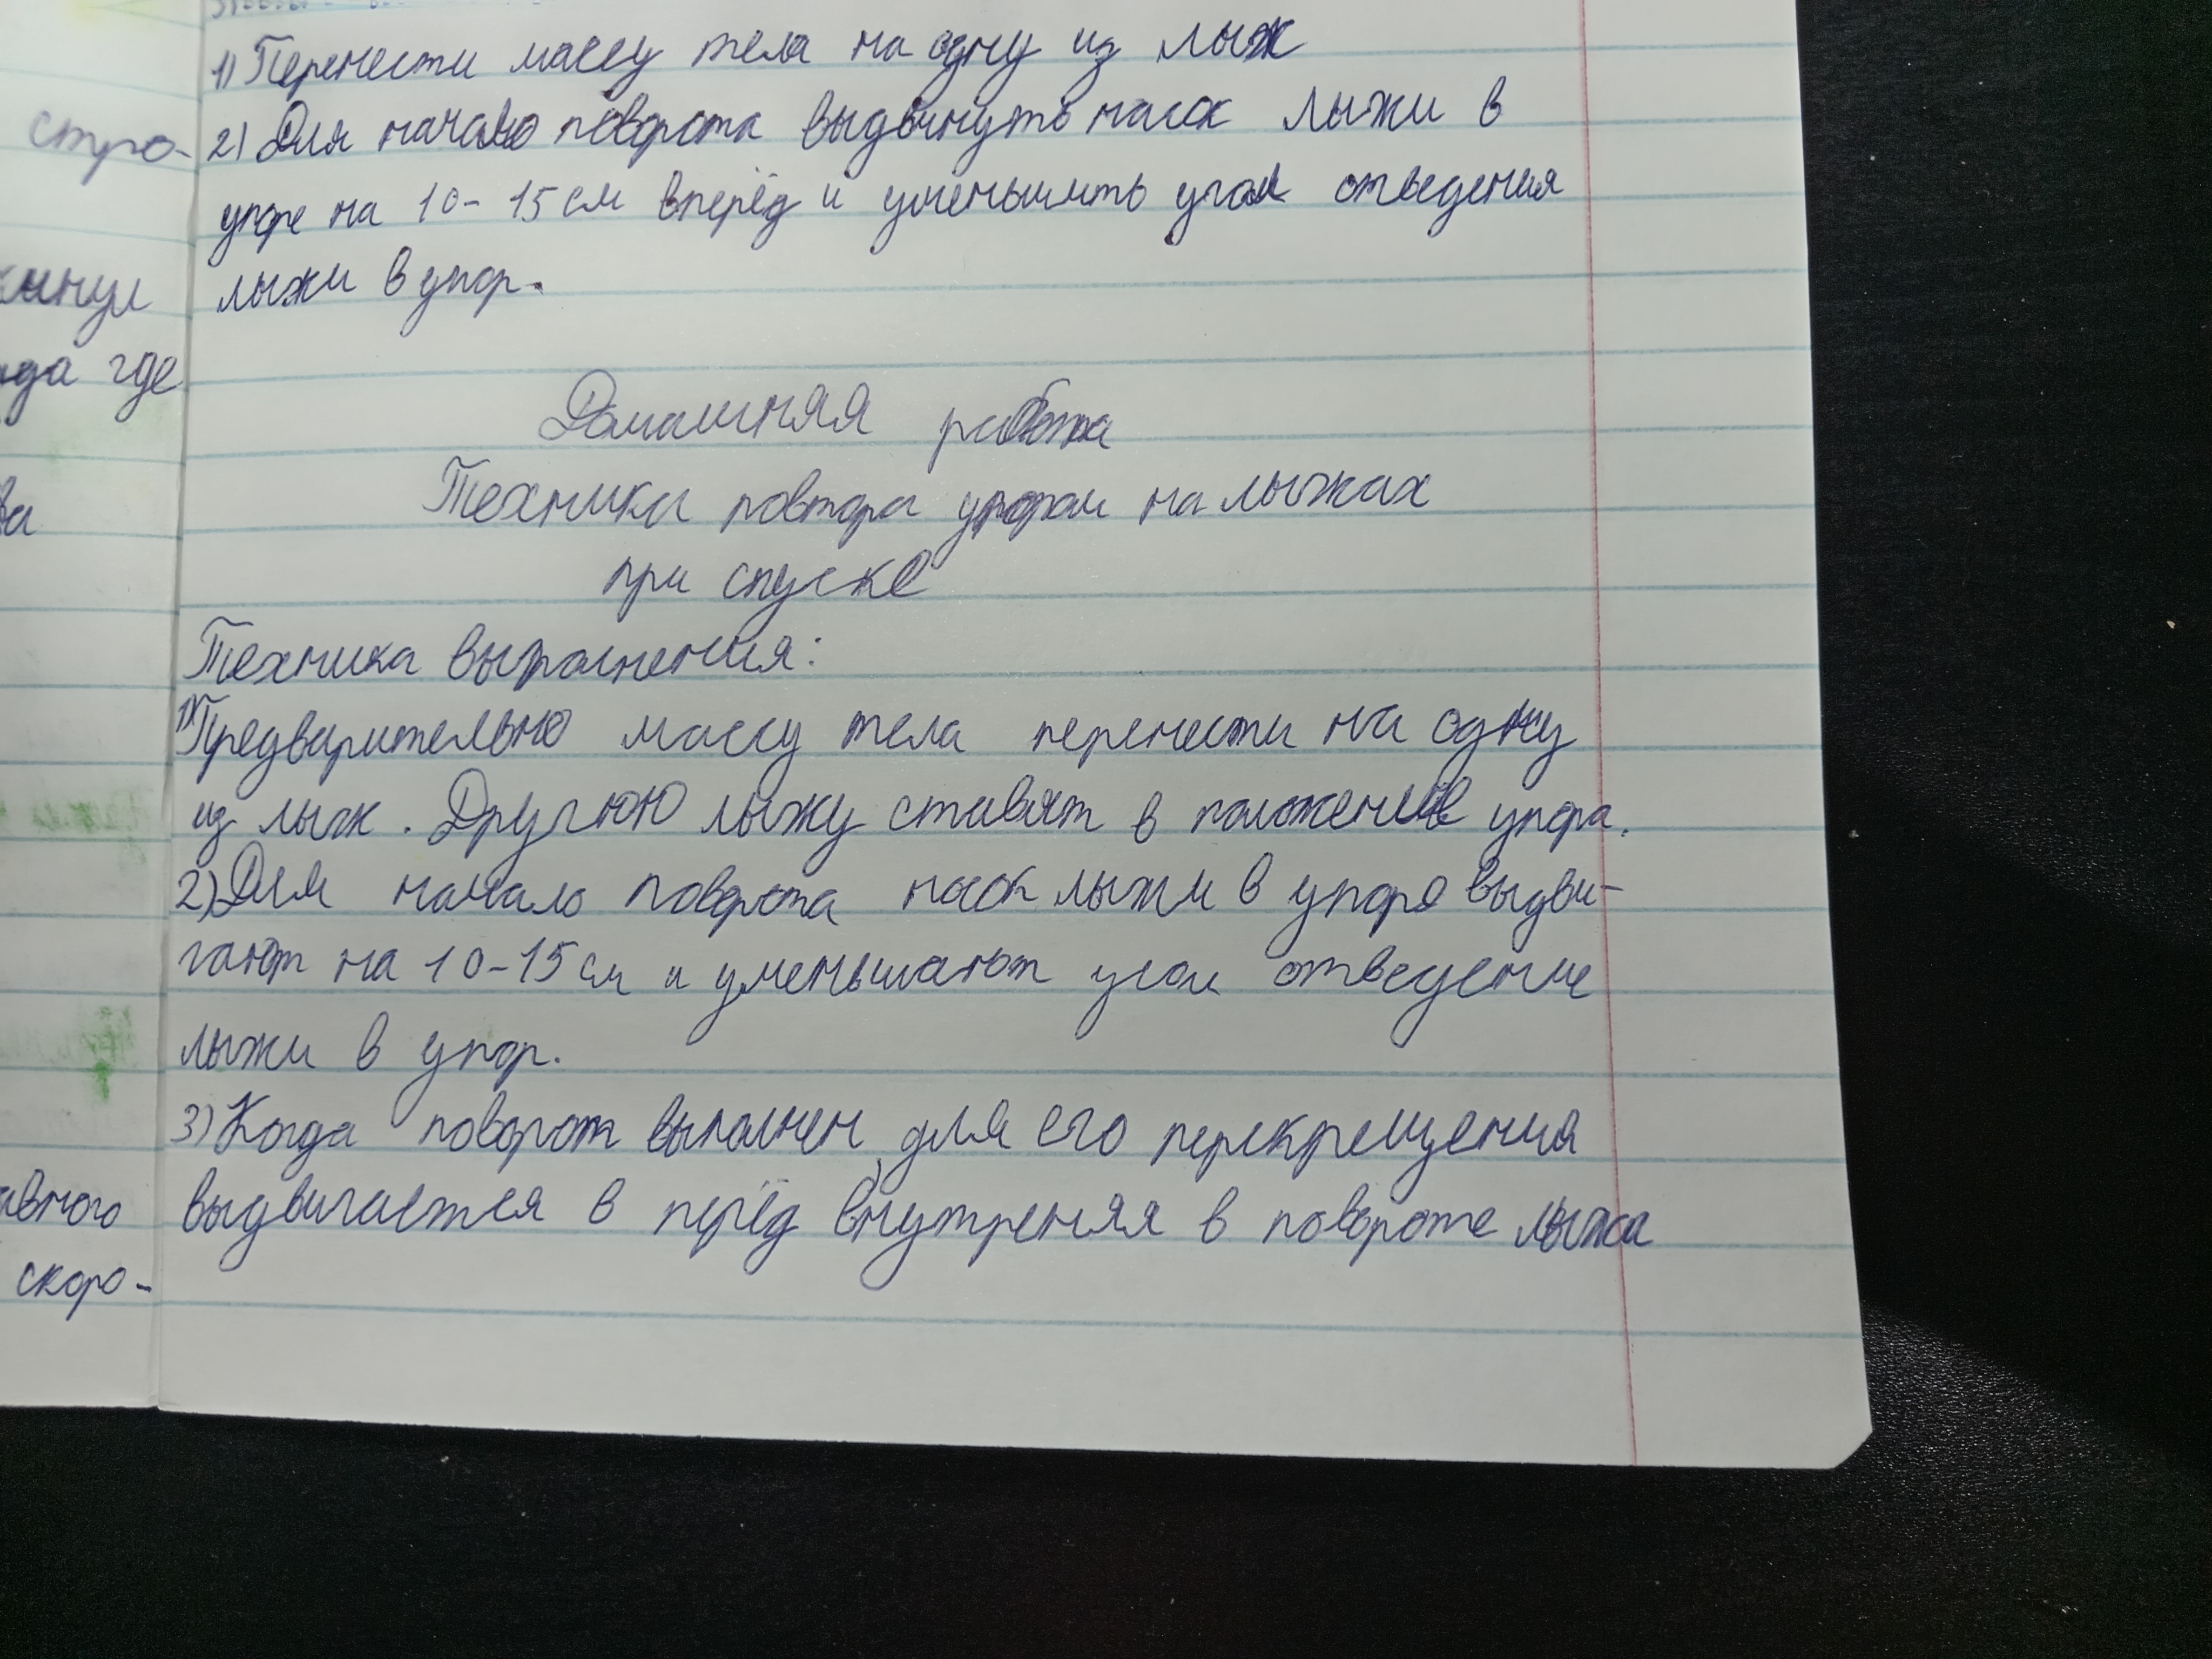 1) Перенести массу тела на одну из лыж
2) Для начало поворота выдвинуть насок лыжи в
упоре на 10-15 см вперёд и уменьшить угол отведения
лыжи в упор.
Домашняя работа
Техника повтора упором на лыжах
при спуске
Техника выполнения:
1) Предварительно массу тела перенести на одну
из лыж. Другюю лыжу ставят в положение упора.
2) Для начало поворота насок лыжи в упоре выдви-
гают на 10-15 см и уменьшают угол отведение
лыжи в упор.
3) Когда поворот выполнен, для его перекрещения
выдвигается в перёд внутреняя в повороте лыжа
стро-
где
ва
скоро-